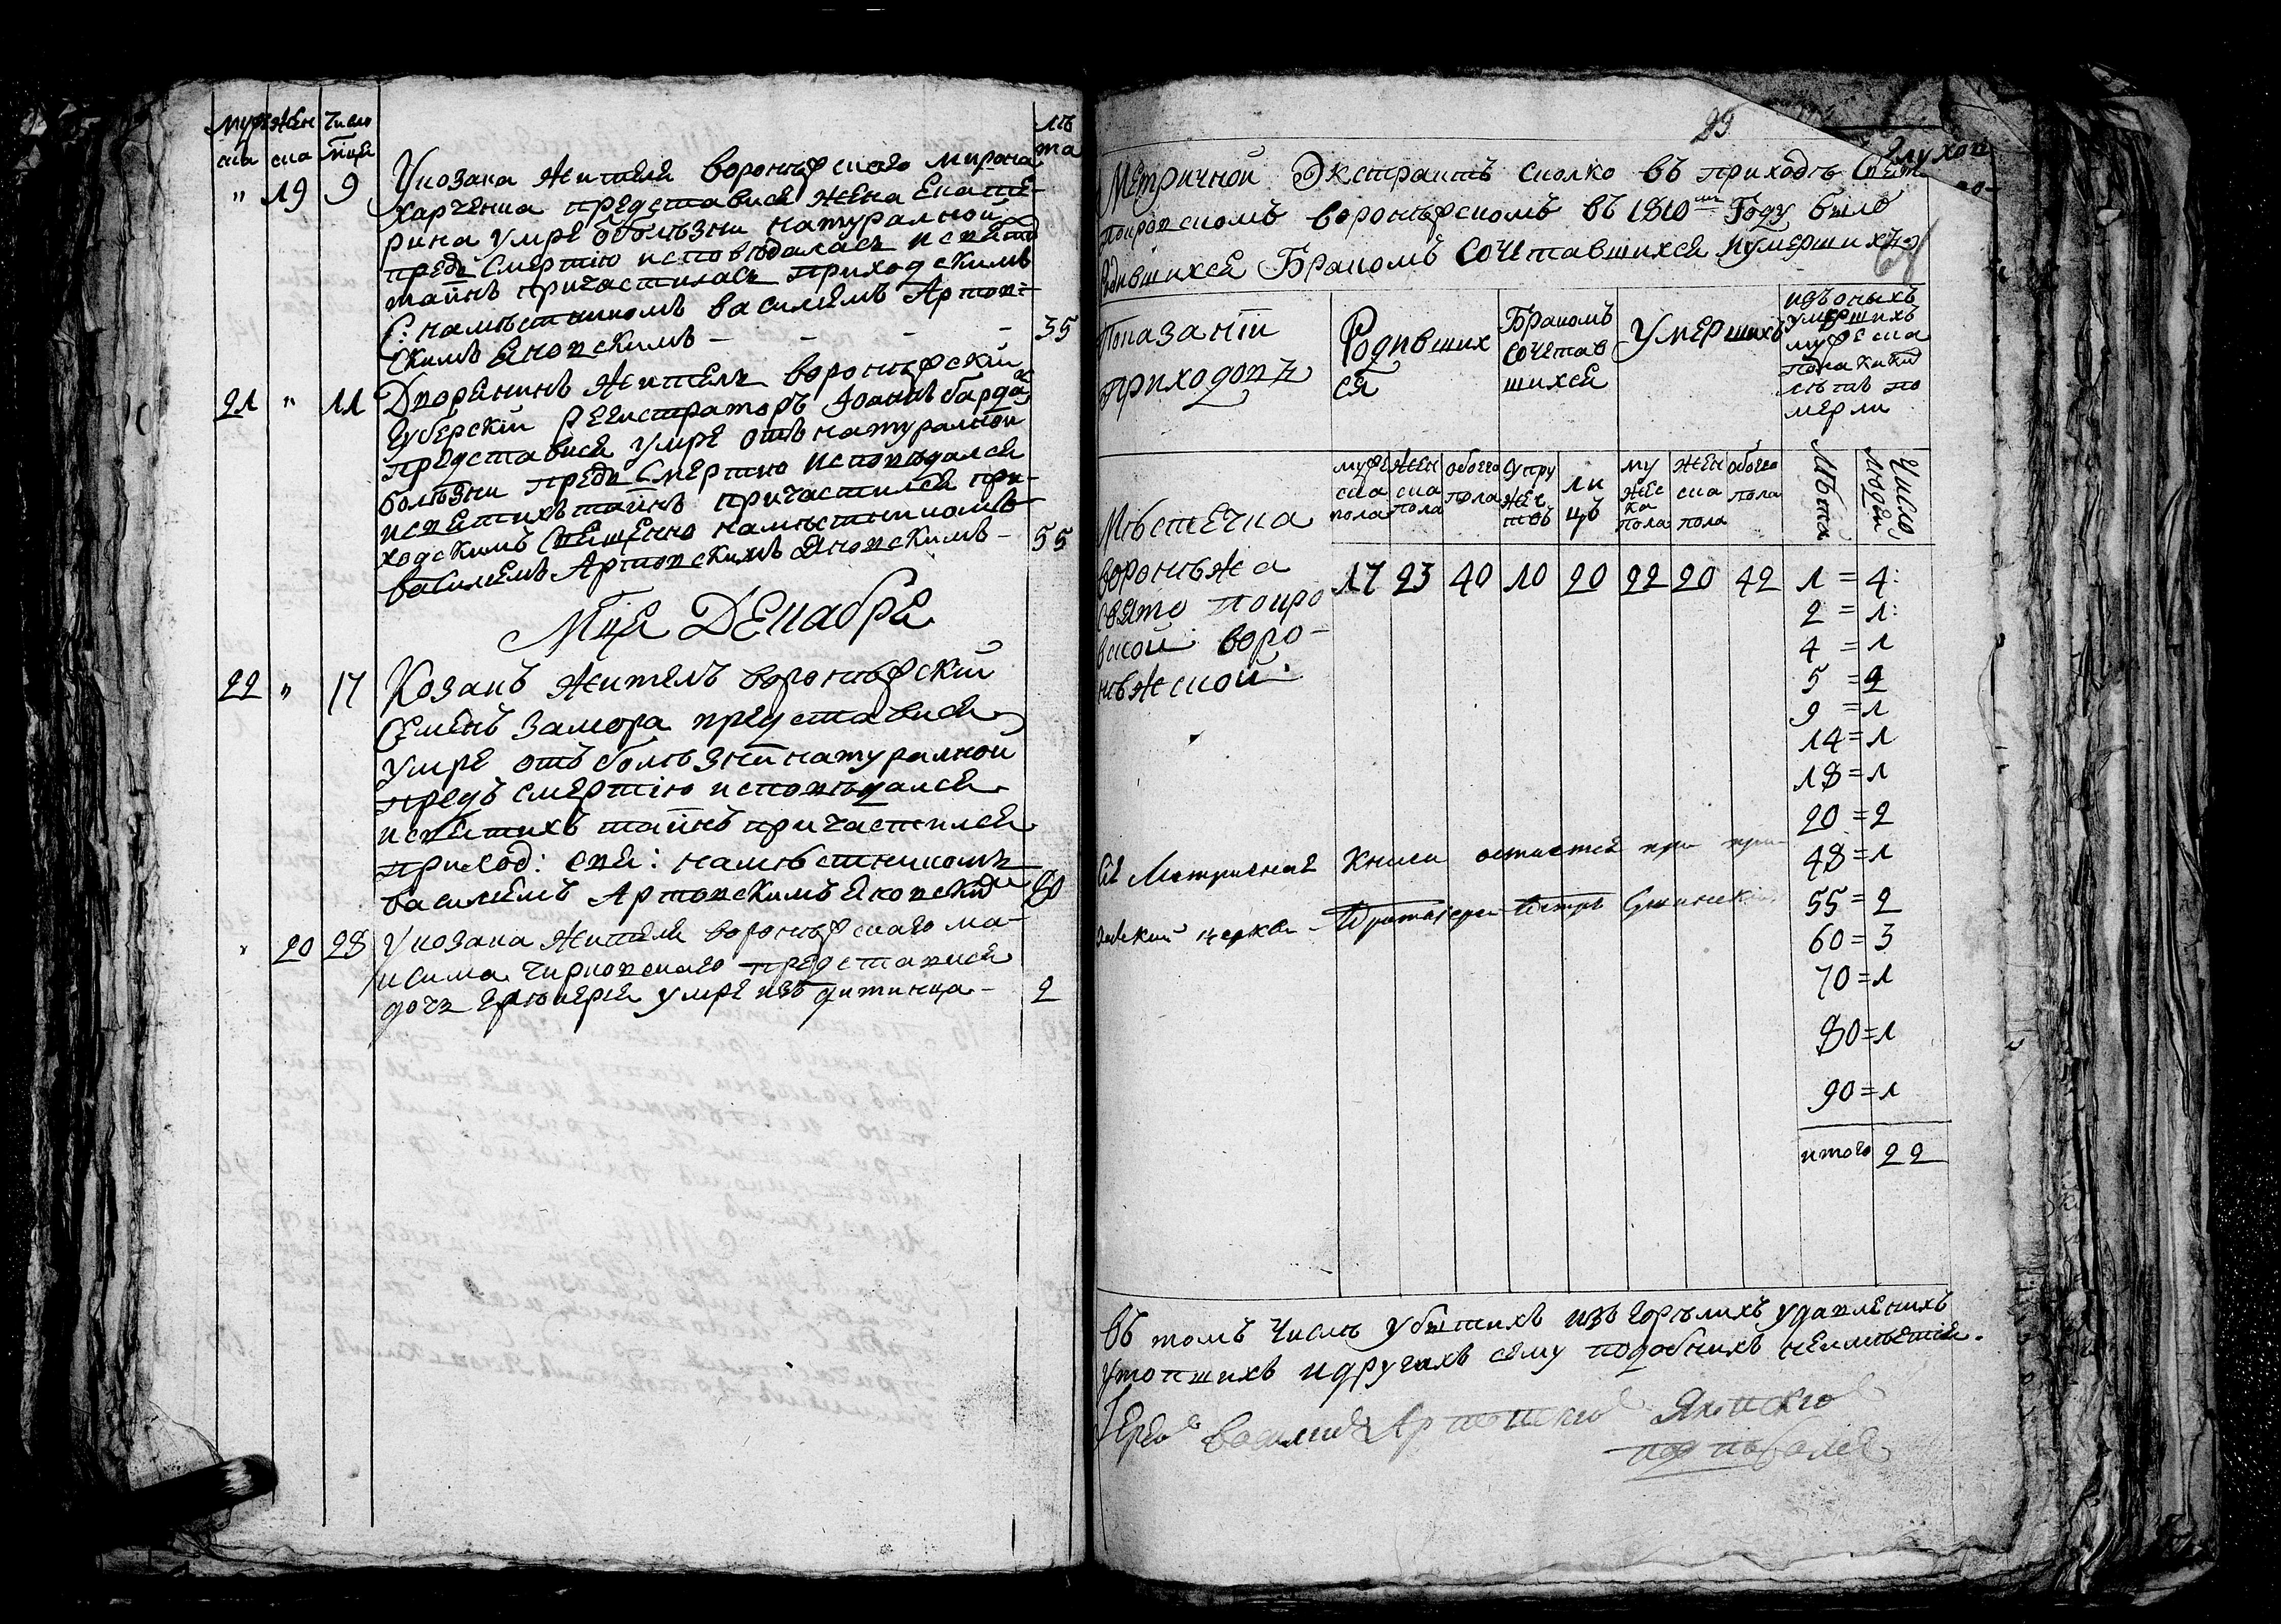 муже жен число лѣ
ска ска мця та
" 19 9 Укозака жителя воронѣжского мирона
Харченка представися жена Екате-
рина умре оболѣзни натуралной
предъ смертію исповѣдалася исвято
тайнъ причастилась приходскимъ
С: намѣстникомъ василіемъ Артов=
скимъ Яновскимъ – – – – 35
21 " 11 Дворянинъ житель воронѣжскій
губерскій регистраторъ Іоаннъ барда
представися умре отъ натуралной
болѣзни предъ смертію исповѣдался
исвятихъ тайнъ причастился при-
ходскимъ священно намѣстникомъ
василіемъ Артовскимъ Яновскимъ – 55
Мця Декабря
22 " 17 Козакъ житель воронѣжскій
Семенъ Замора представися
умре отъ болѣзни натуралной
предъ смертію исповѣдался
исвятихъ тайнъ причастился
приход: свя: намѣстникомъ
василіемъ Артовскимъ Яновским 80
" 20 28 Укозака жителя воронѣжскаго ма-
ксима Чирковскаго представися
дочь Гликерія умре изъ дитинца – 2
25
Глухов
Метричной Экстрактъ сколко въ приходѣ Свято
покровскомъ воронѣжскомъ въ 1810мъ Году было
родившихся Бракомъ Сочетавшихся иумершихъ
Показаніи
приходовъ
Родивших
ся
Бракомъ
сочетав
шихся
Умершихъ
изъ оныхъ
умершихъ
мужеска
пола каких
лѣтъ по
мерли
муже
ска
пола
жен
ска
пола
обоего
пола
Супру
жес
твъ
ли
цъ
му
жес
ка
пола
жен
ска
пола
обоего
пола
Лѣта
Число
людей
Мѣстечка
воронѣжа
свято покро
вской воро-
нѣжской
17 23 40 10 20 22 20 42 1 = 4:
2 = 1:
4 = 1
5 = 2
9 = 1
14 = 1
18 = 1
20 = 2
48 = 1
55 = 2
60 = 3
70 = 1
80 = 1
90 = 1
итого 22
Сія Метричная Книга остается при
церкви Протоіерей Петръ
Въ томъ числѣ убитихъ изъ горѣлихъ удавленихъ
утопшихъ идругихъ сему подобнихъ неимѣется.
Іерей Василій Артовскій Яновскій
подписался